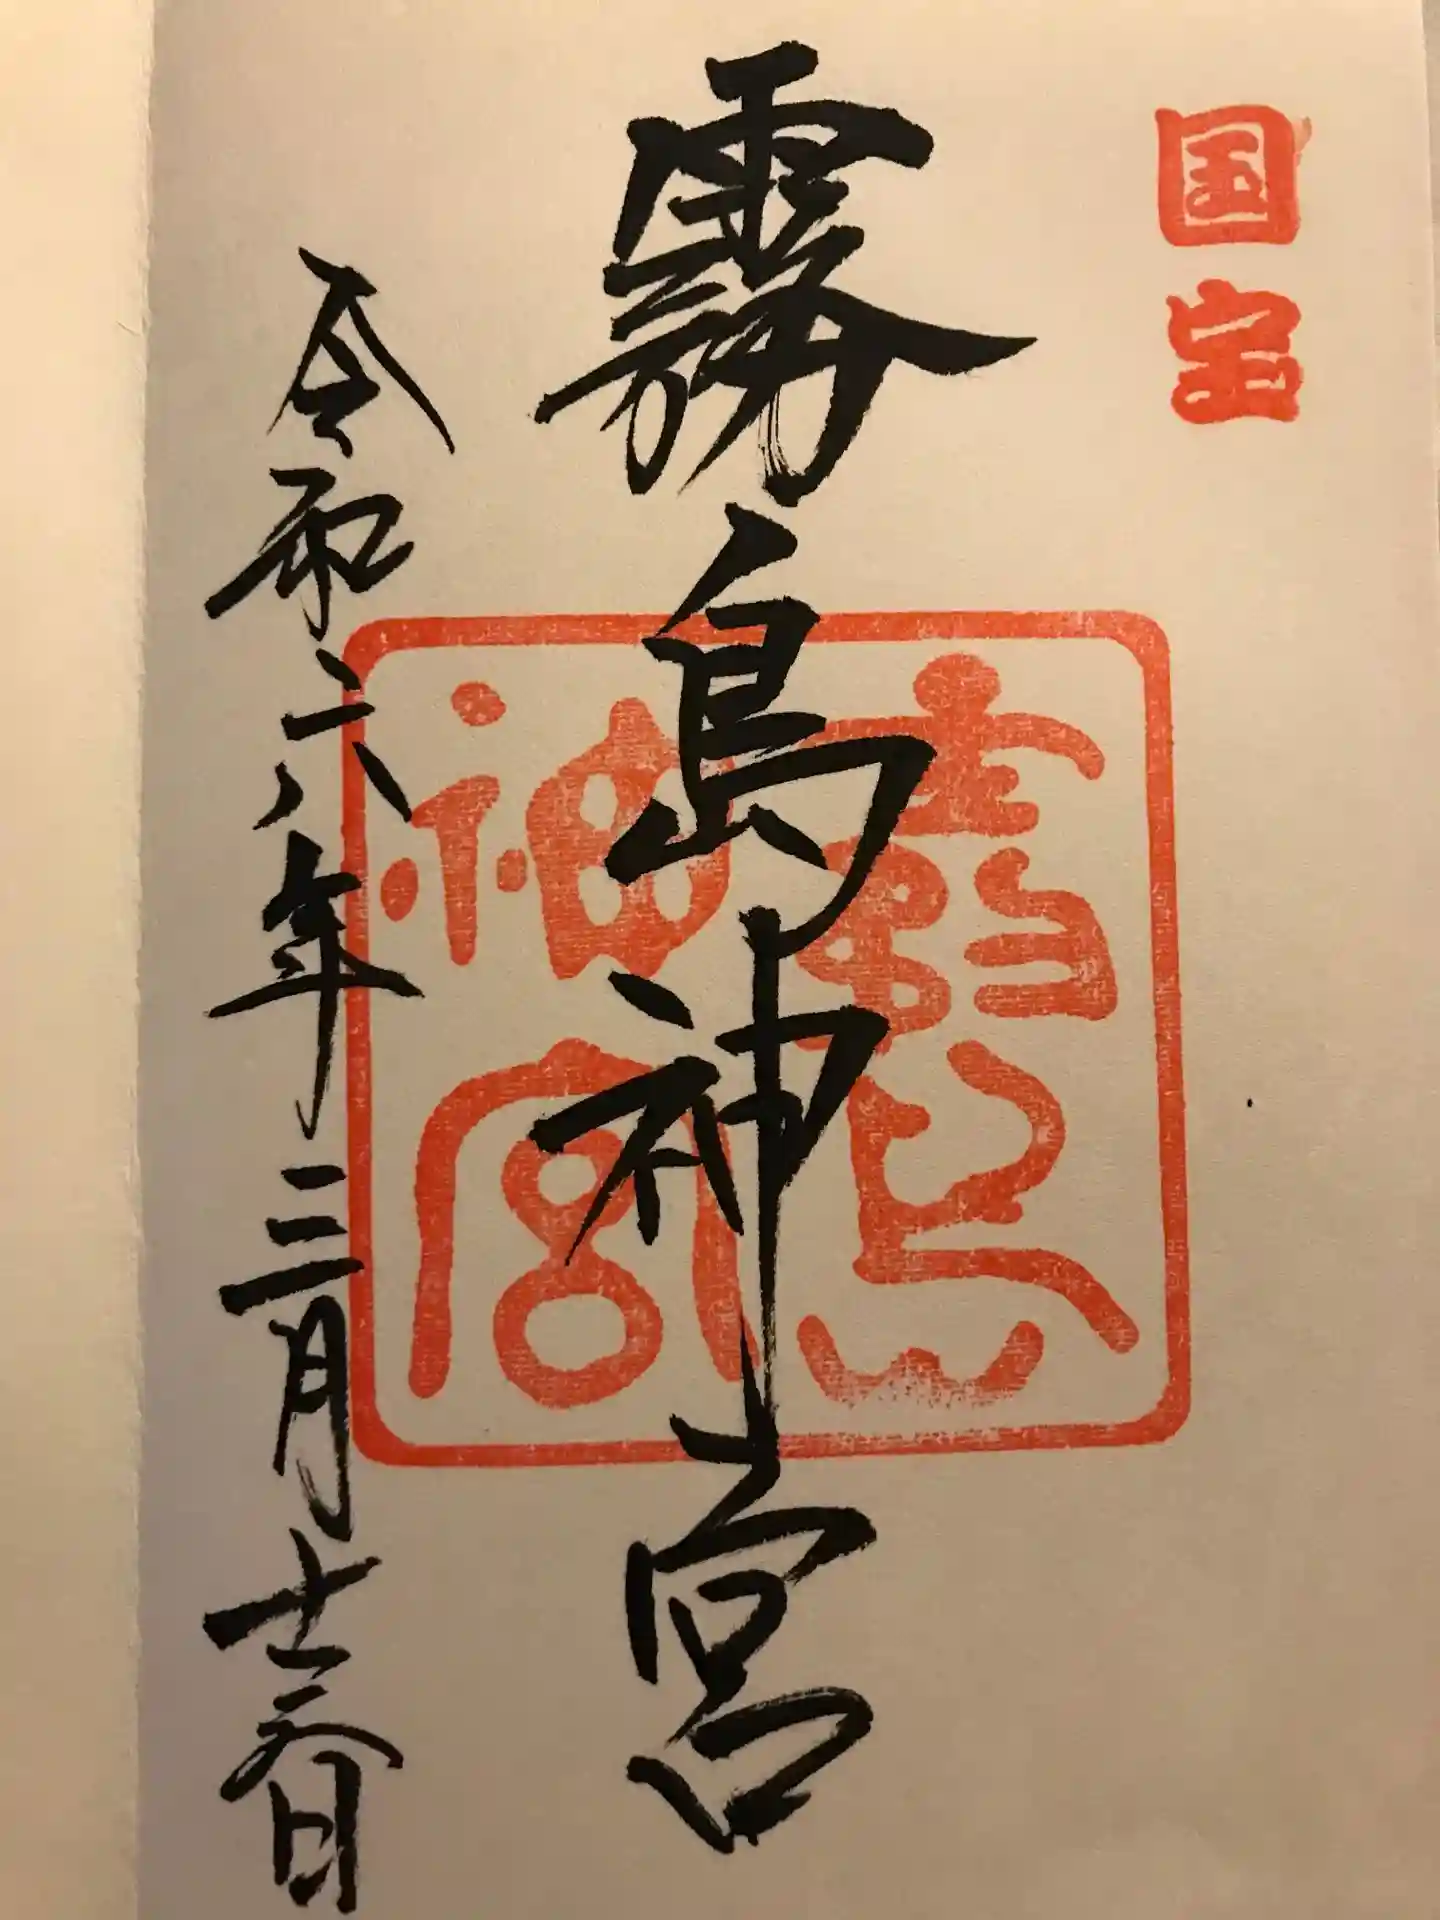 国宝
霧島神宮
霧島神宮
令和六年三月十六日